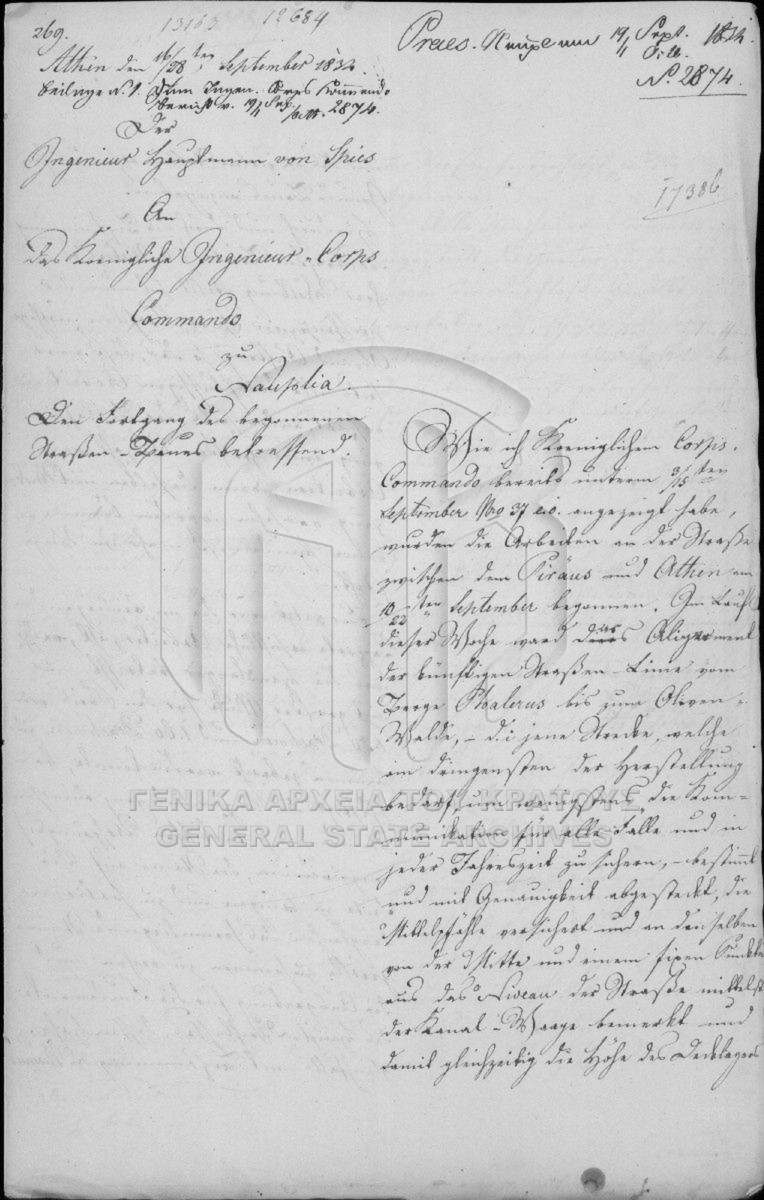 269.
13163 12684
Praes. Nauplia am 19/1 Sept./Oktb. 1834.
N. 2874.
Athen den 16/28ten September 1834.
Beilage N. 1. zum Ingen. Corps Kommando
Bericht v. 19/1 Sep./Okt. 2874.
Der
Ingenieur Hauptmann von Spies
17386
An
das Koenigliche Ingenieur-Corps
Commando
zu
Nauplia.
Den Fortgang des begonnenen
Straßen-Baues betreffend.
Wie ich Koeniglichem Corps-
Commando bereits unterm 3/15ten
September Nro 37 angezeigt habe,
wurden die Arbeiten an der Straße
zwischen dem Piräus und Athen am
10/22ten September begonnen. Im Laufe
dieser Woche ward das Alignement
der künftigen Straßen-Linie vom
Berge Phalerus bis zum Oliven-
Walde, – d.i. jene Strecke, welche
am dringensten der Herstellung
bedarf, um wenigstens die Kom-
munikation für alle Fälle und in
jeder Jahreszeit zu sichern, – bestimmt
und mit Genauigkeit abgesteckt, die
Mittelpfähle versichert und an denselben
von der Mitte und einem fixen Punkte
aus das Niveau der Straße mittelst
der Kanal-Waage bemerkt und
damit gleichzeitig die Höhe des Decklagers
ΓΕΝΙΚΑ ΑΡΧΕΙΑ ΤΟΥ ΚΡΑΤΟΥΣ
GENERAL STATE ARCHIVES